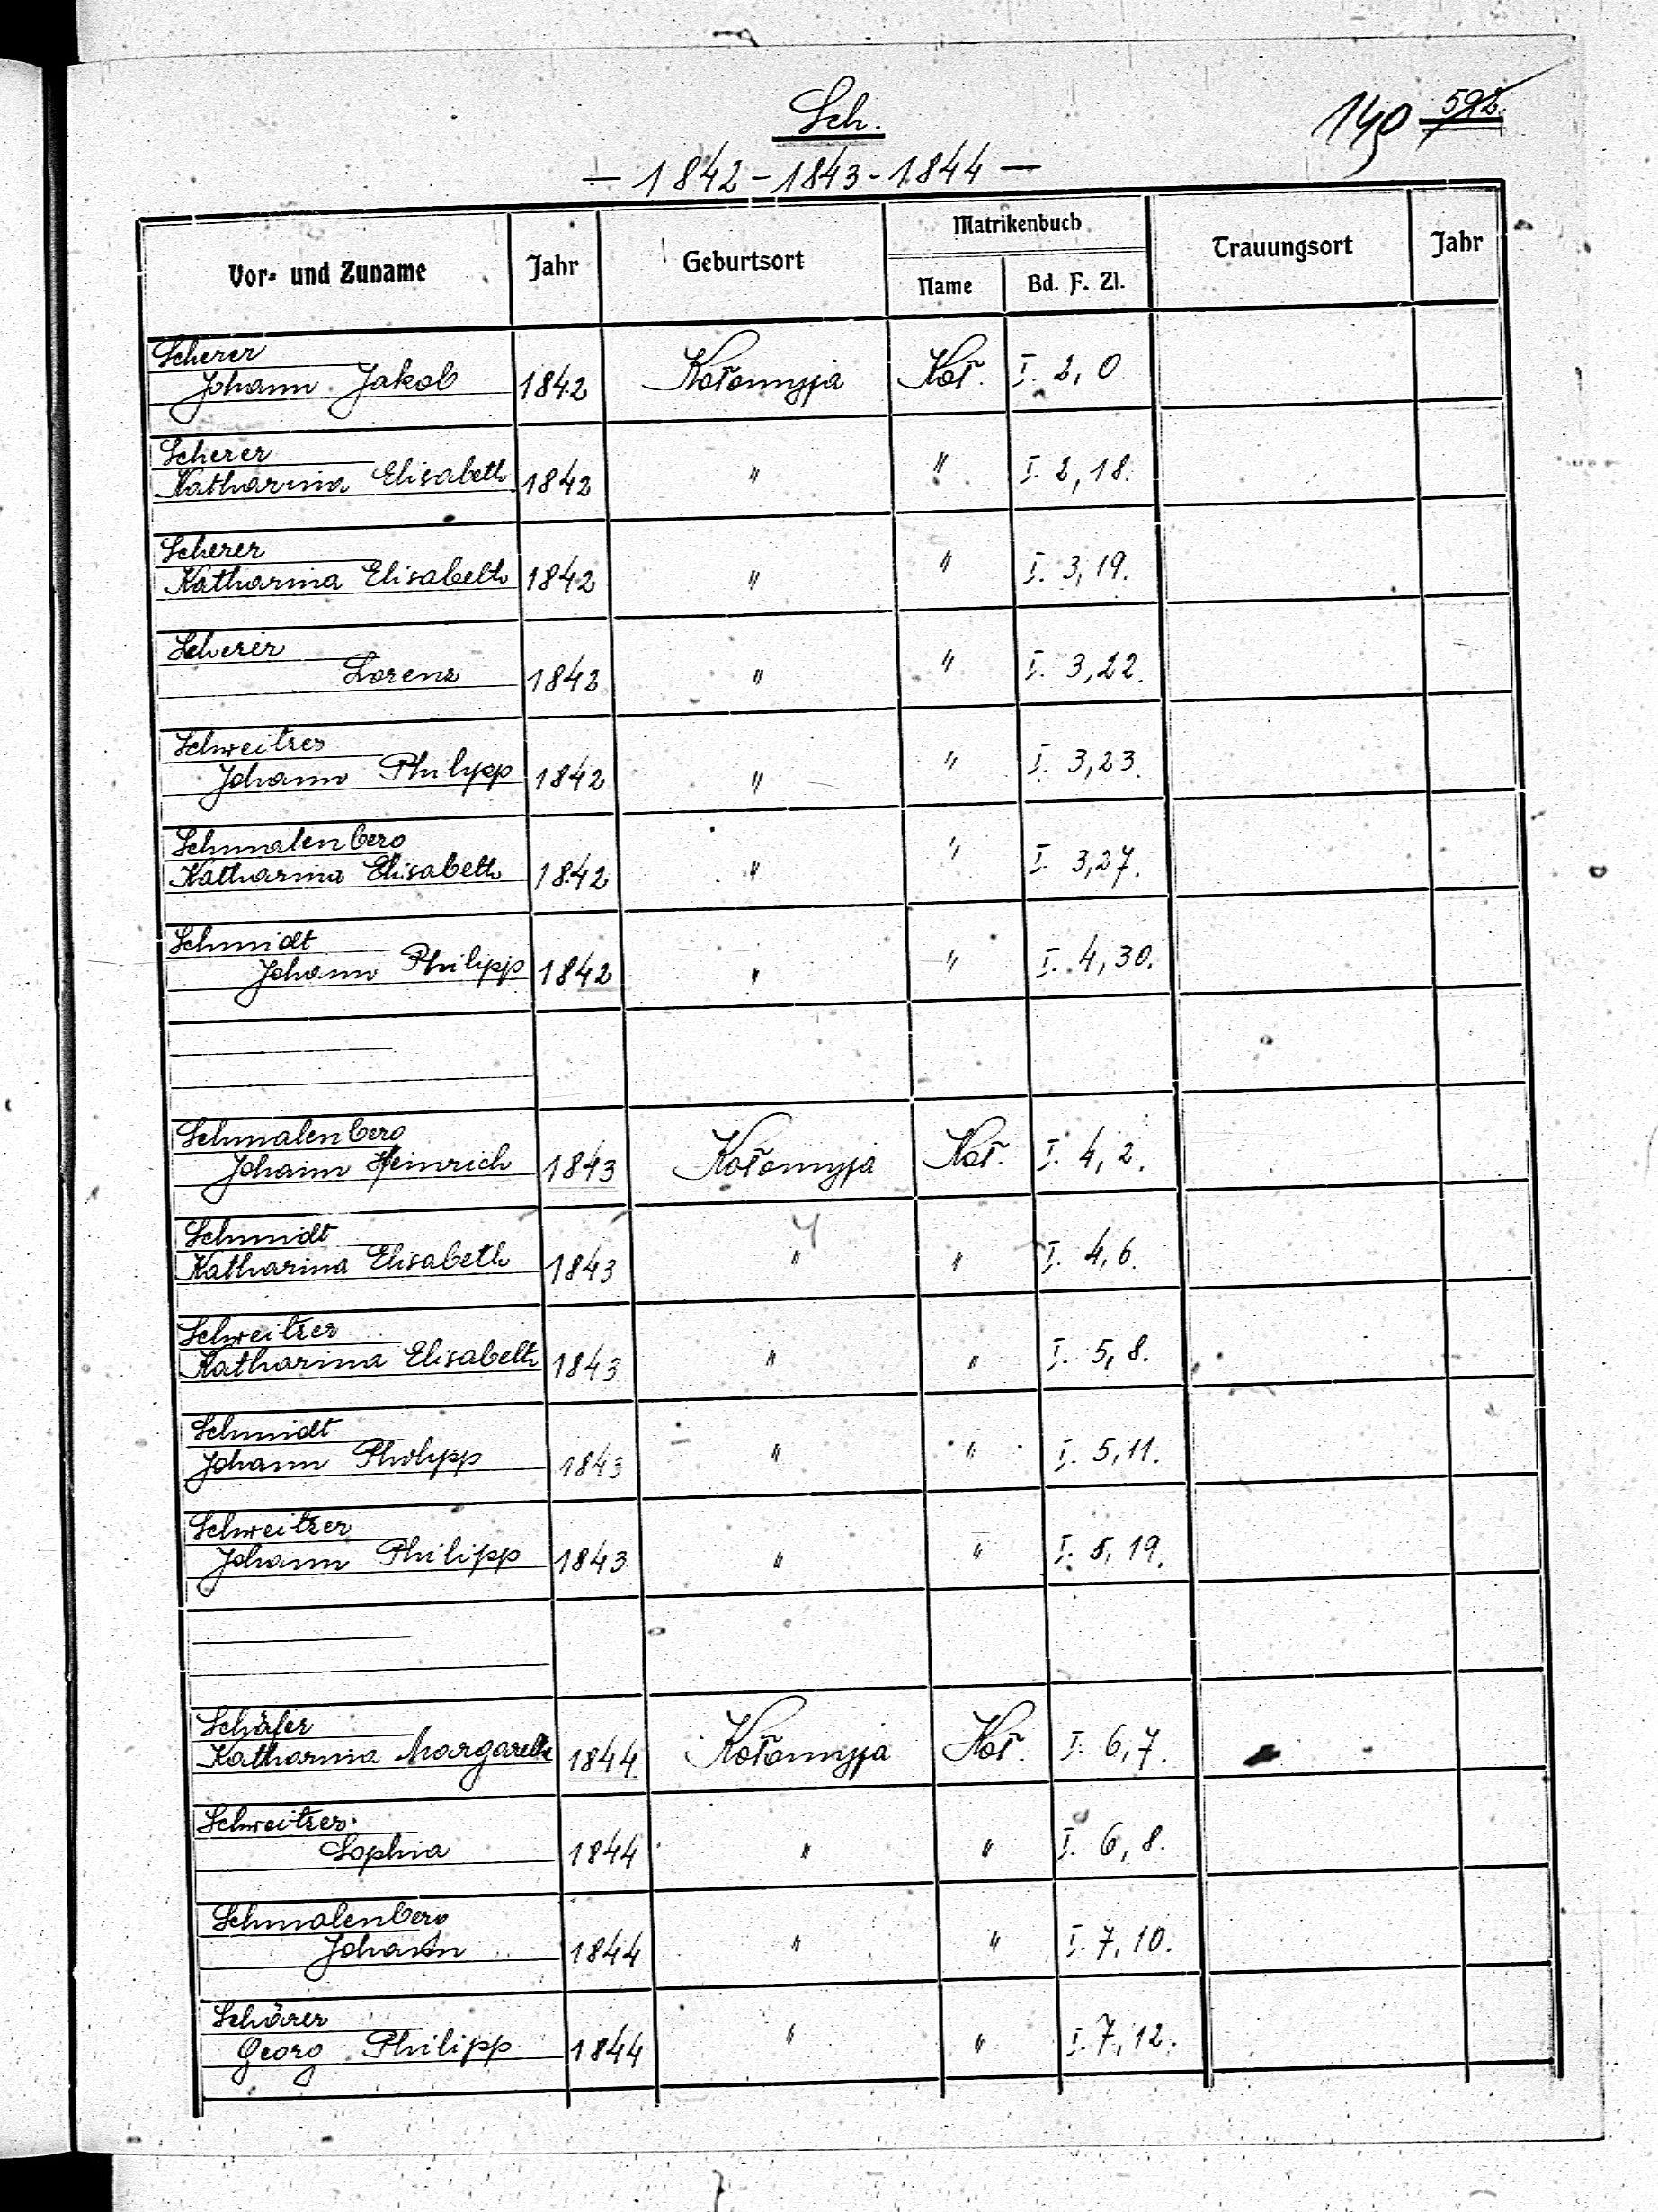 Sch.
190 592.
— 1842 - 1843 - 1844 —
Vor- und Zuname Jahr Geburtsort Matrikenbuch Trauungsort Jahr
Name Bd. F. Zl.
Scherer
Johann Jakob 1842 Kołomyja Koł. I. 2, 0
Scherer
Katharina Elisabeth 1842 " " I. 2, 18.
Scherer
Katharina Elisabeth 1842 " " I. 3, 19.
Scherer
Lorenz 1842 " " I. 3, 22.
Schweitzer
Johann Philipp 1842 " " I. 3, 23.
Schmalenberg
Katharina Elisabeth 1842 " " I. 3, 27.
Schmidt
Johann Philipp 1842 " " I. 4, 30.
Schmalenberg
Johann Heinrich 1843 Kołomyja Koł. I. 4, 2.
Schmidt
Katharina Elisabeth 1843 " " I. 4, 6.
Schweitzer
Katharina Elisabeth 1843 " " I. 5, 8.
Schmidt
Johann Philipp 1843 " " I. 5, 11.
Schweitzer
Johann Philipp 1843 " " I. 5, 19.
Schäfer
Katharina Margareth 1844 Kołomyja Koł. I. 6, 7.
Schweitzer
Sophia 1844 " " I. 6, 8.
Schmalenberg
Johann 1844 " " I. 7, 10.
Schörer
Georg Philipp 1844 " " I. 7, 12.